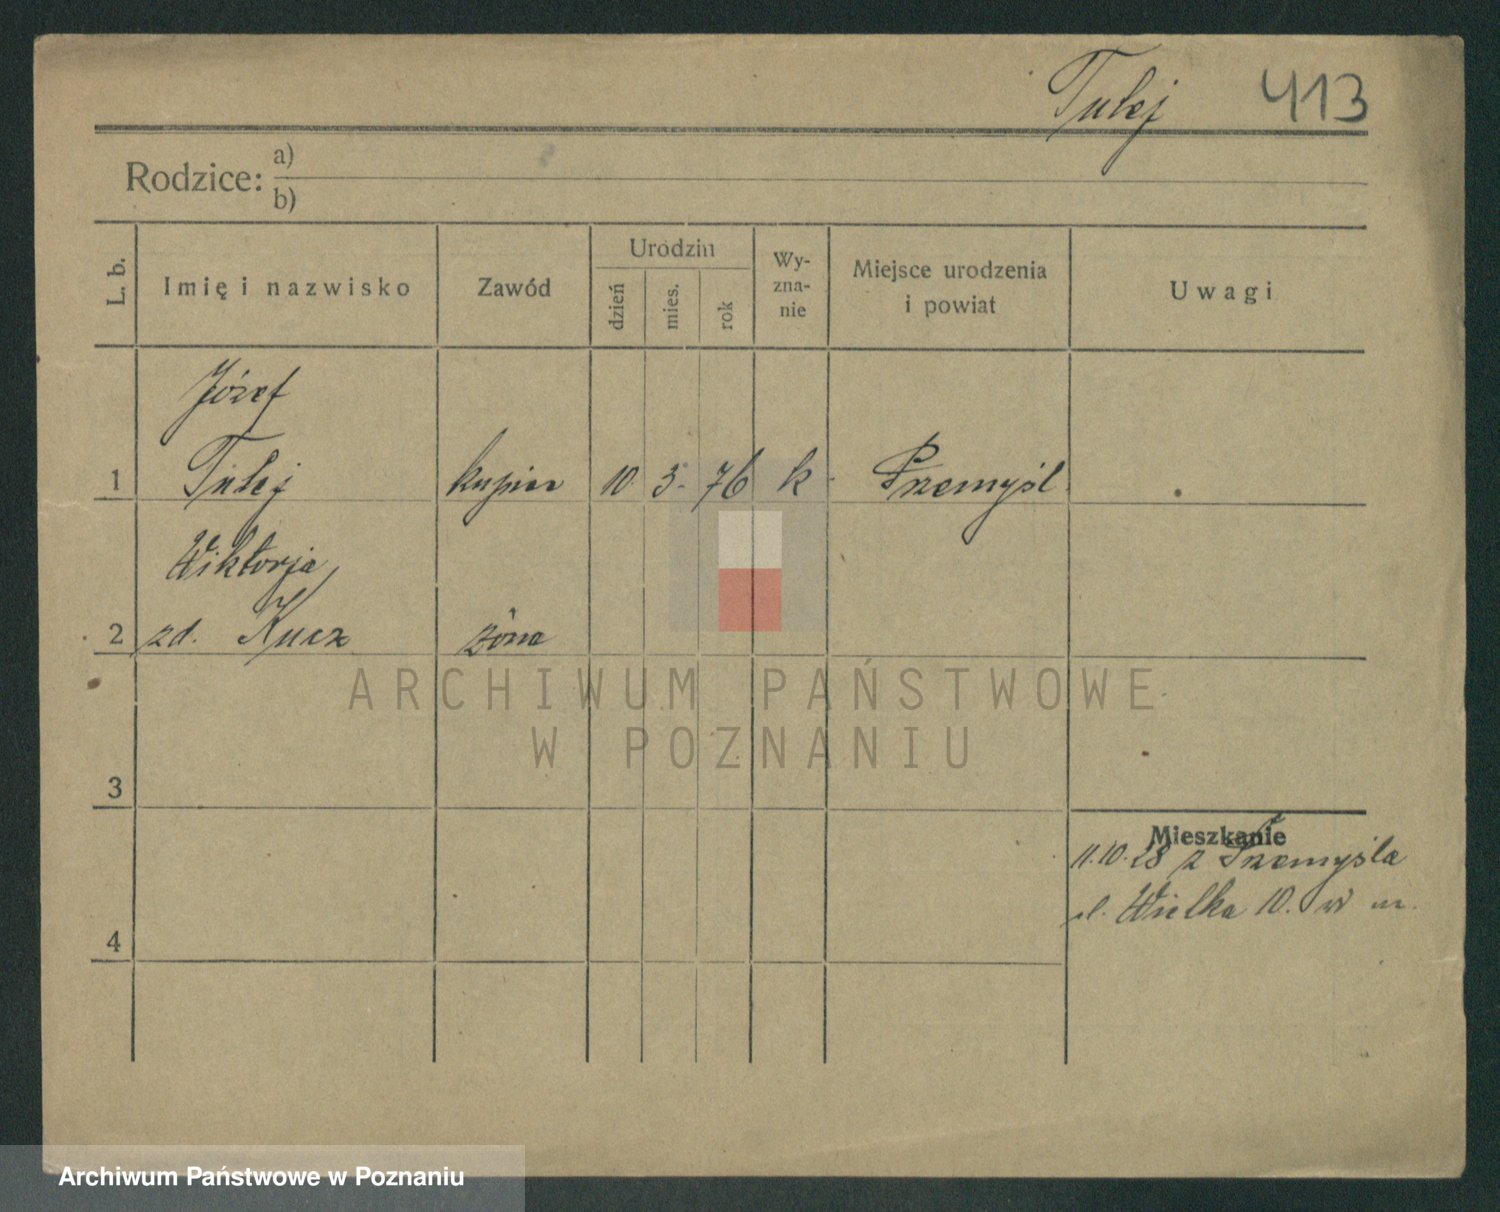 Tulej 413
Rodzice: a)
b)
L. b. Imię i nazwisko Zawód Urodzin dzień mies. rok Wy-zna-nie Miejsce urodzenia i powiat Uwagi
Józef
1 Tulej kupiec 10. 3. 76 k. Przemyśl
Wiktorja
2 zd. Kucz żona
ARCHIWUM PAŃSTWOWE
W POZNANIU
3
Mieszkanie
11.10.28 z Przemyśla
ul. Wielka 10. w m.
4
Archiwum Państwowe w Poznaniu